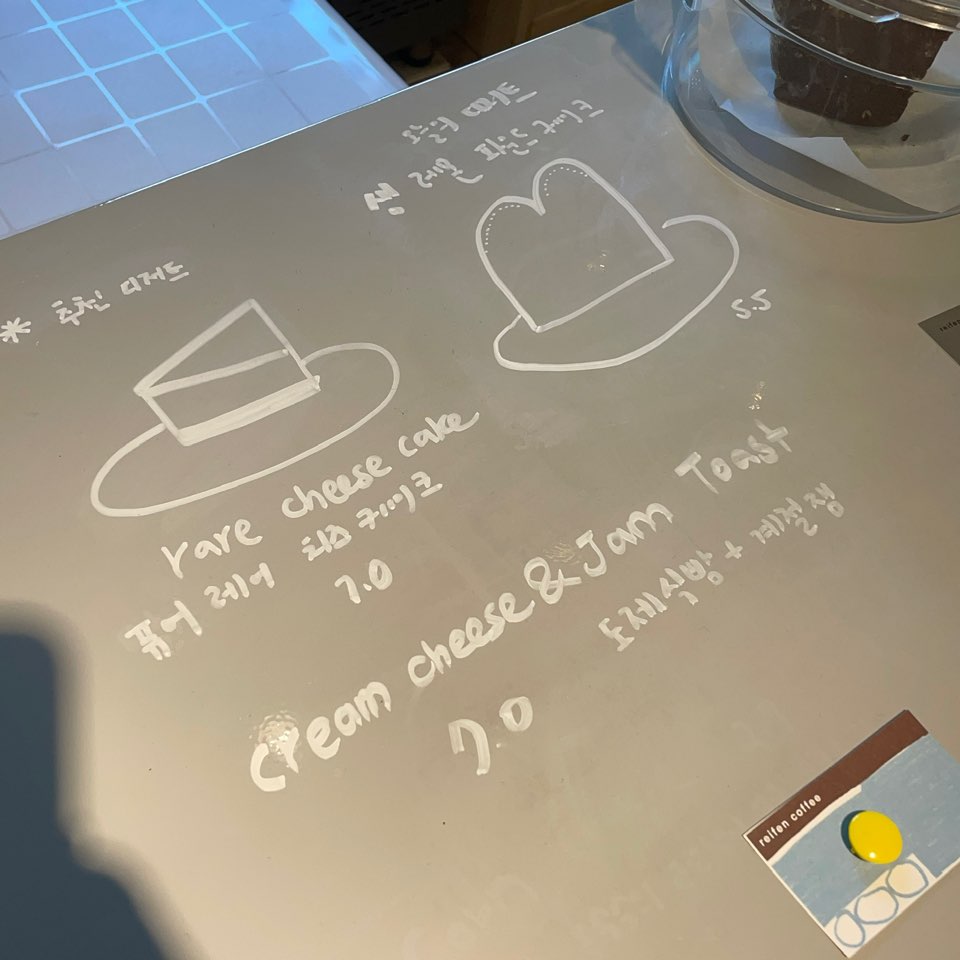 파운드 케이크
5.5
* 추천 디저트
rare cheese cake
퓨어 레어 치즈 케이크
7.0
Cream cheese & Jam Toast
도제식빵 + 계절잼
7.0
reifen coffee